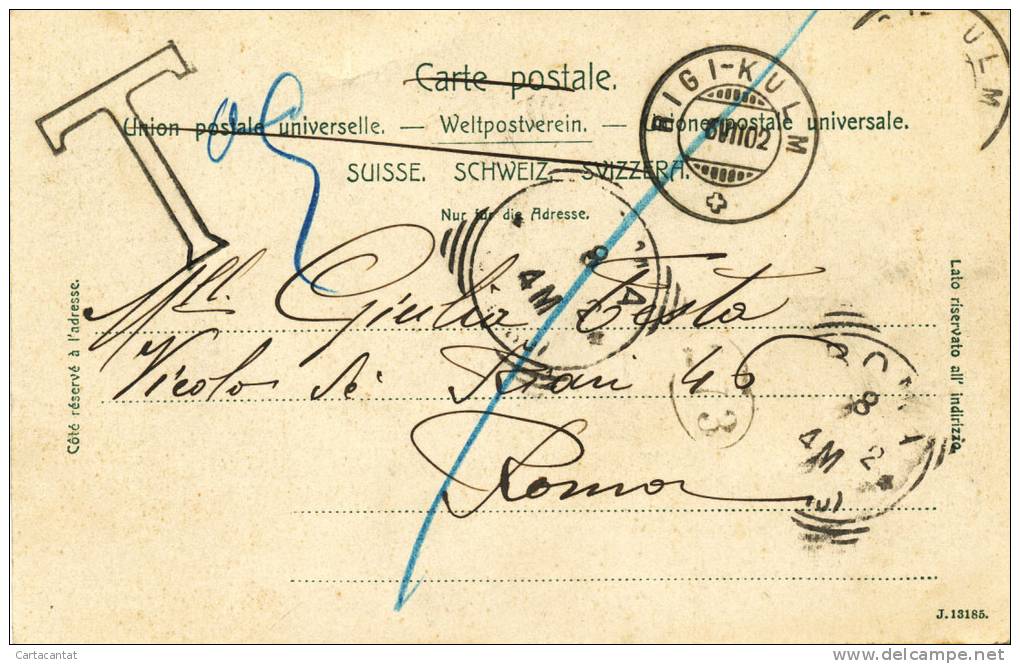 T
Carte postale.
Union postale universelle. — Weltpostverein. — Unione postale universale.
SUISSE. SCHWEIZ. SVIZZERA.
Nur für die Adresse.
RIGI-KULM
6VII02
ULM
8
4 M
Mll. Giulia Testa
Vicolo de 46
Roma
3
8
4 M
2
Côté réservé à l'adresse.
Lato riservato all' indirizzo
J. 13185.
Cartacantat
www.delcampe.net